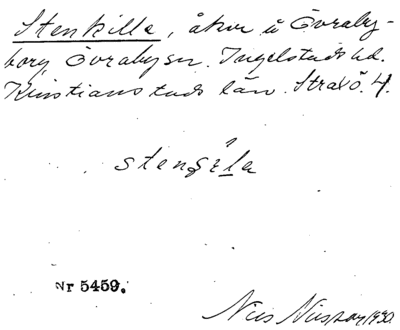 Stenkilla, åker å Övraby-
borg Övraby sn. Ingelstads hd.
Kristianstads län. Straxö. 4.
stengila
Nr 5459.
Nils Nilsson 1930.